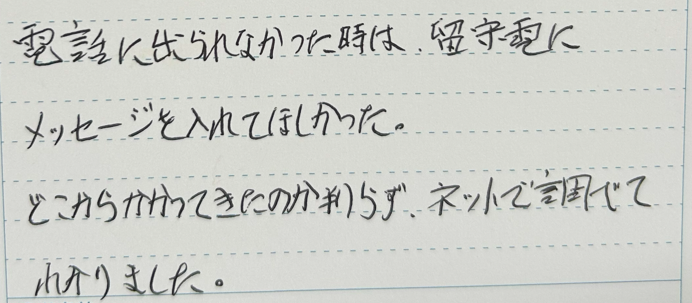 電話に出られなかった時は、留守電に
メッセージを入れてほしかった。
どこからかかってきたのか判らず、ネットで調べて
わかりました。